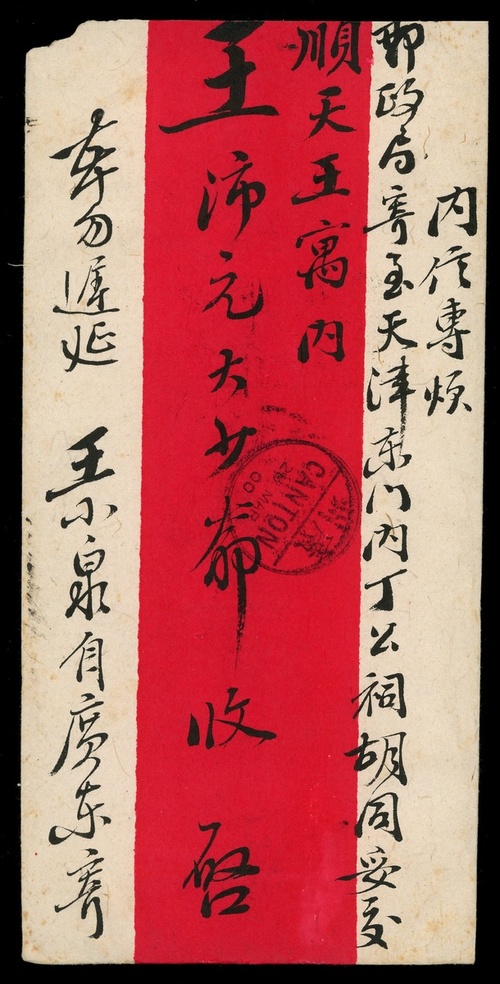 内信專煩
郵政局寄至天津东门内丁公祠胡同妥交
順天王寓内
王沛元大少爺收啓
幸勿遲延 王小泉自廣东寄
CANTON
MAR
00